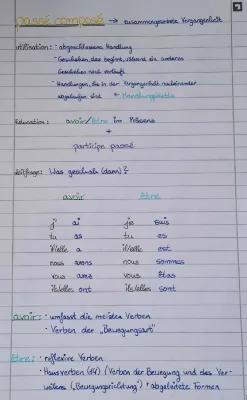 passé composé → zusammengesetzte Vergangenheit
utilisation: · abgeschlossene Handlung
· Geschehen das beginnt, während ein anderes
Geschehen noch verläuft
· Handlungen, die in der Vergangenheit nacheinander
abgelaufen sind ← Handlungskette
avoir/être im Präsens
+
participe passé
Was geschah (dann)?
avoir être
j' ai je suis
tu as tu es
il/elle a il/elle est
nous avons nous sommes
vous avez vous êtes
ils/elles ont ils/elles sont
avoir: · umfasst die meisten Verben
· Verben der „Bewegungsart"
être: · reflexive Verben
· Hausverben (14) (Verben der Bewegung und des Ver-
weilens („Bewegungsrichtung") + abgeleitete Formen